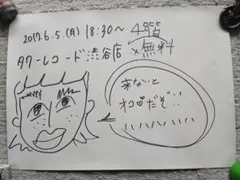 2017.6.5.(月) 18:30～ 4階
タワーレコード渋谷店 ×無料
来ないと
オコだぞ!!